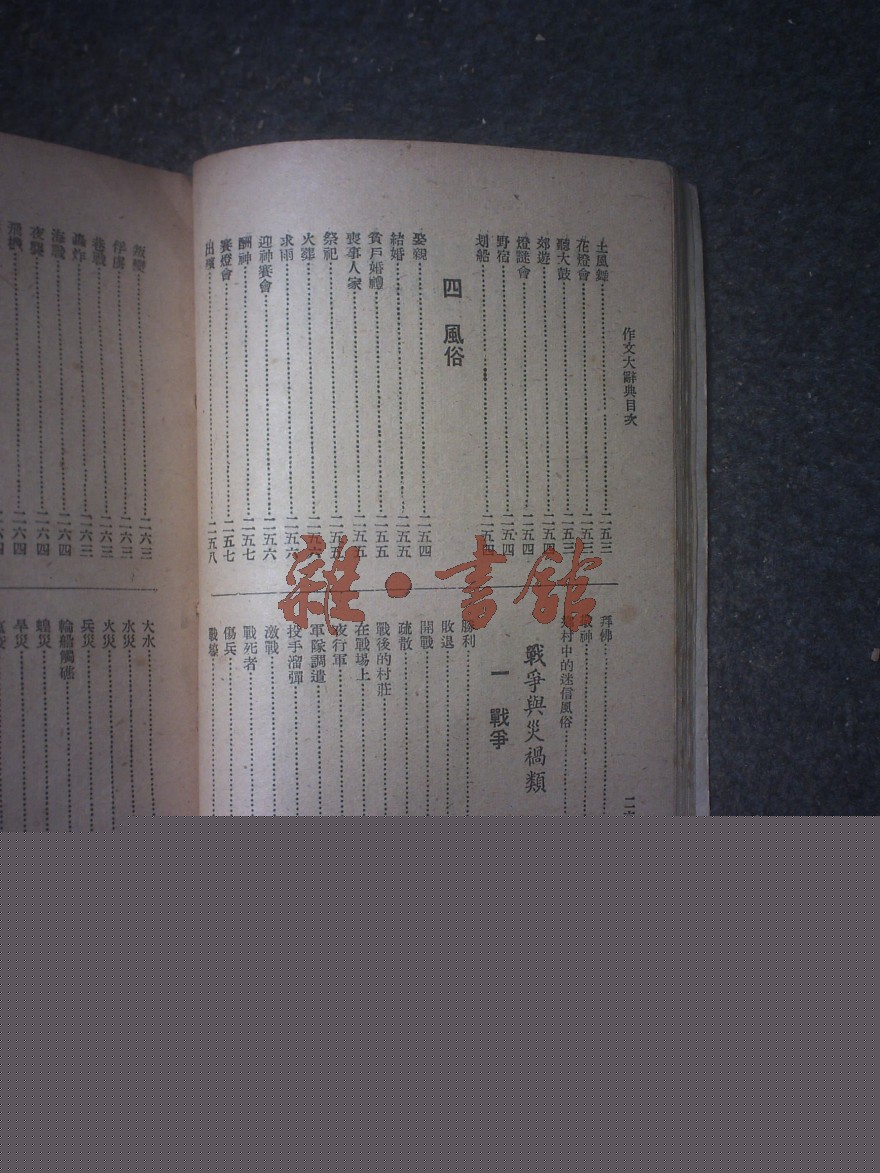 作文大辭典目次
土風舞⋯⋯二五三
花燈會⋯⋯二五三
聽大鼓⋯⋯二五三
郊遊⋯⋯二五四
燈謎會⋯⋯二五四
野宿⋯⋯二五四
划船⋯⋯二五四
四 風俗
娶親⋯⋯二五四
結婚⋯⋯二五五
貧戶婚禮⋯⋯二五五
喪事人家⋯⋯二五五
祭祀⋯⋯二五五
火葬⋯⋯二五六
求雨⋯⋯二五六
迎神賽會⋯⋯二五六
酬神⋯⋯二五七
賽燈會⋯⋯二五七
出殯⋯⋯二五八
拜佛
神
村中的迷信風俗
戰爭與災禍類
一 戰爭
勝利
敗退
開戰
疏散
戰後的村莊
在戰場上
夜行軍
軍隊調遣
投手溜彈
激戰
戰死者
傷兵
戰壕
雜·書館
兵變⋯⋯二六三
俘虜⋯⋯二六三
巷戰⋯⋯二六三
轟炸⋯⋯二六三
海戰⋯⋯二六四
夜襲⋯⋯二六四
飛機
大水
水災
火災
兵災
輪船觸礁
蝗災
旱災